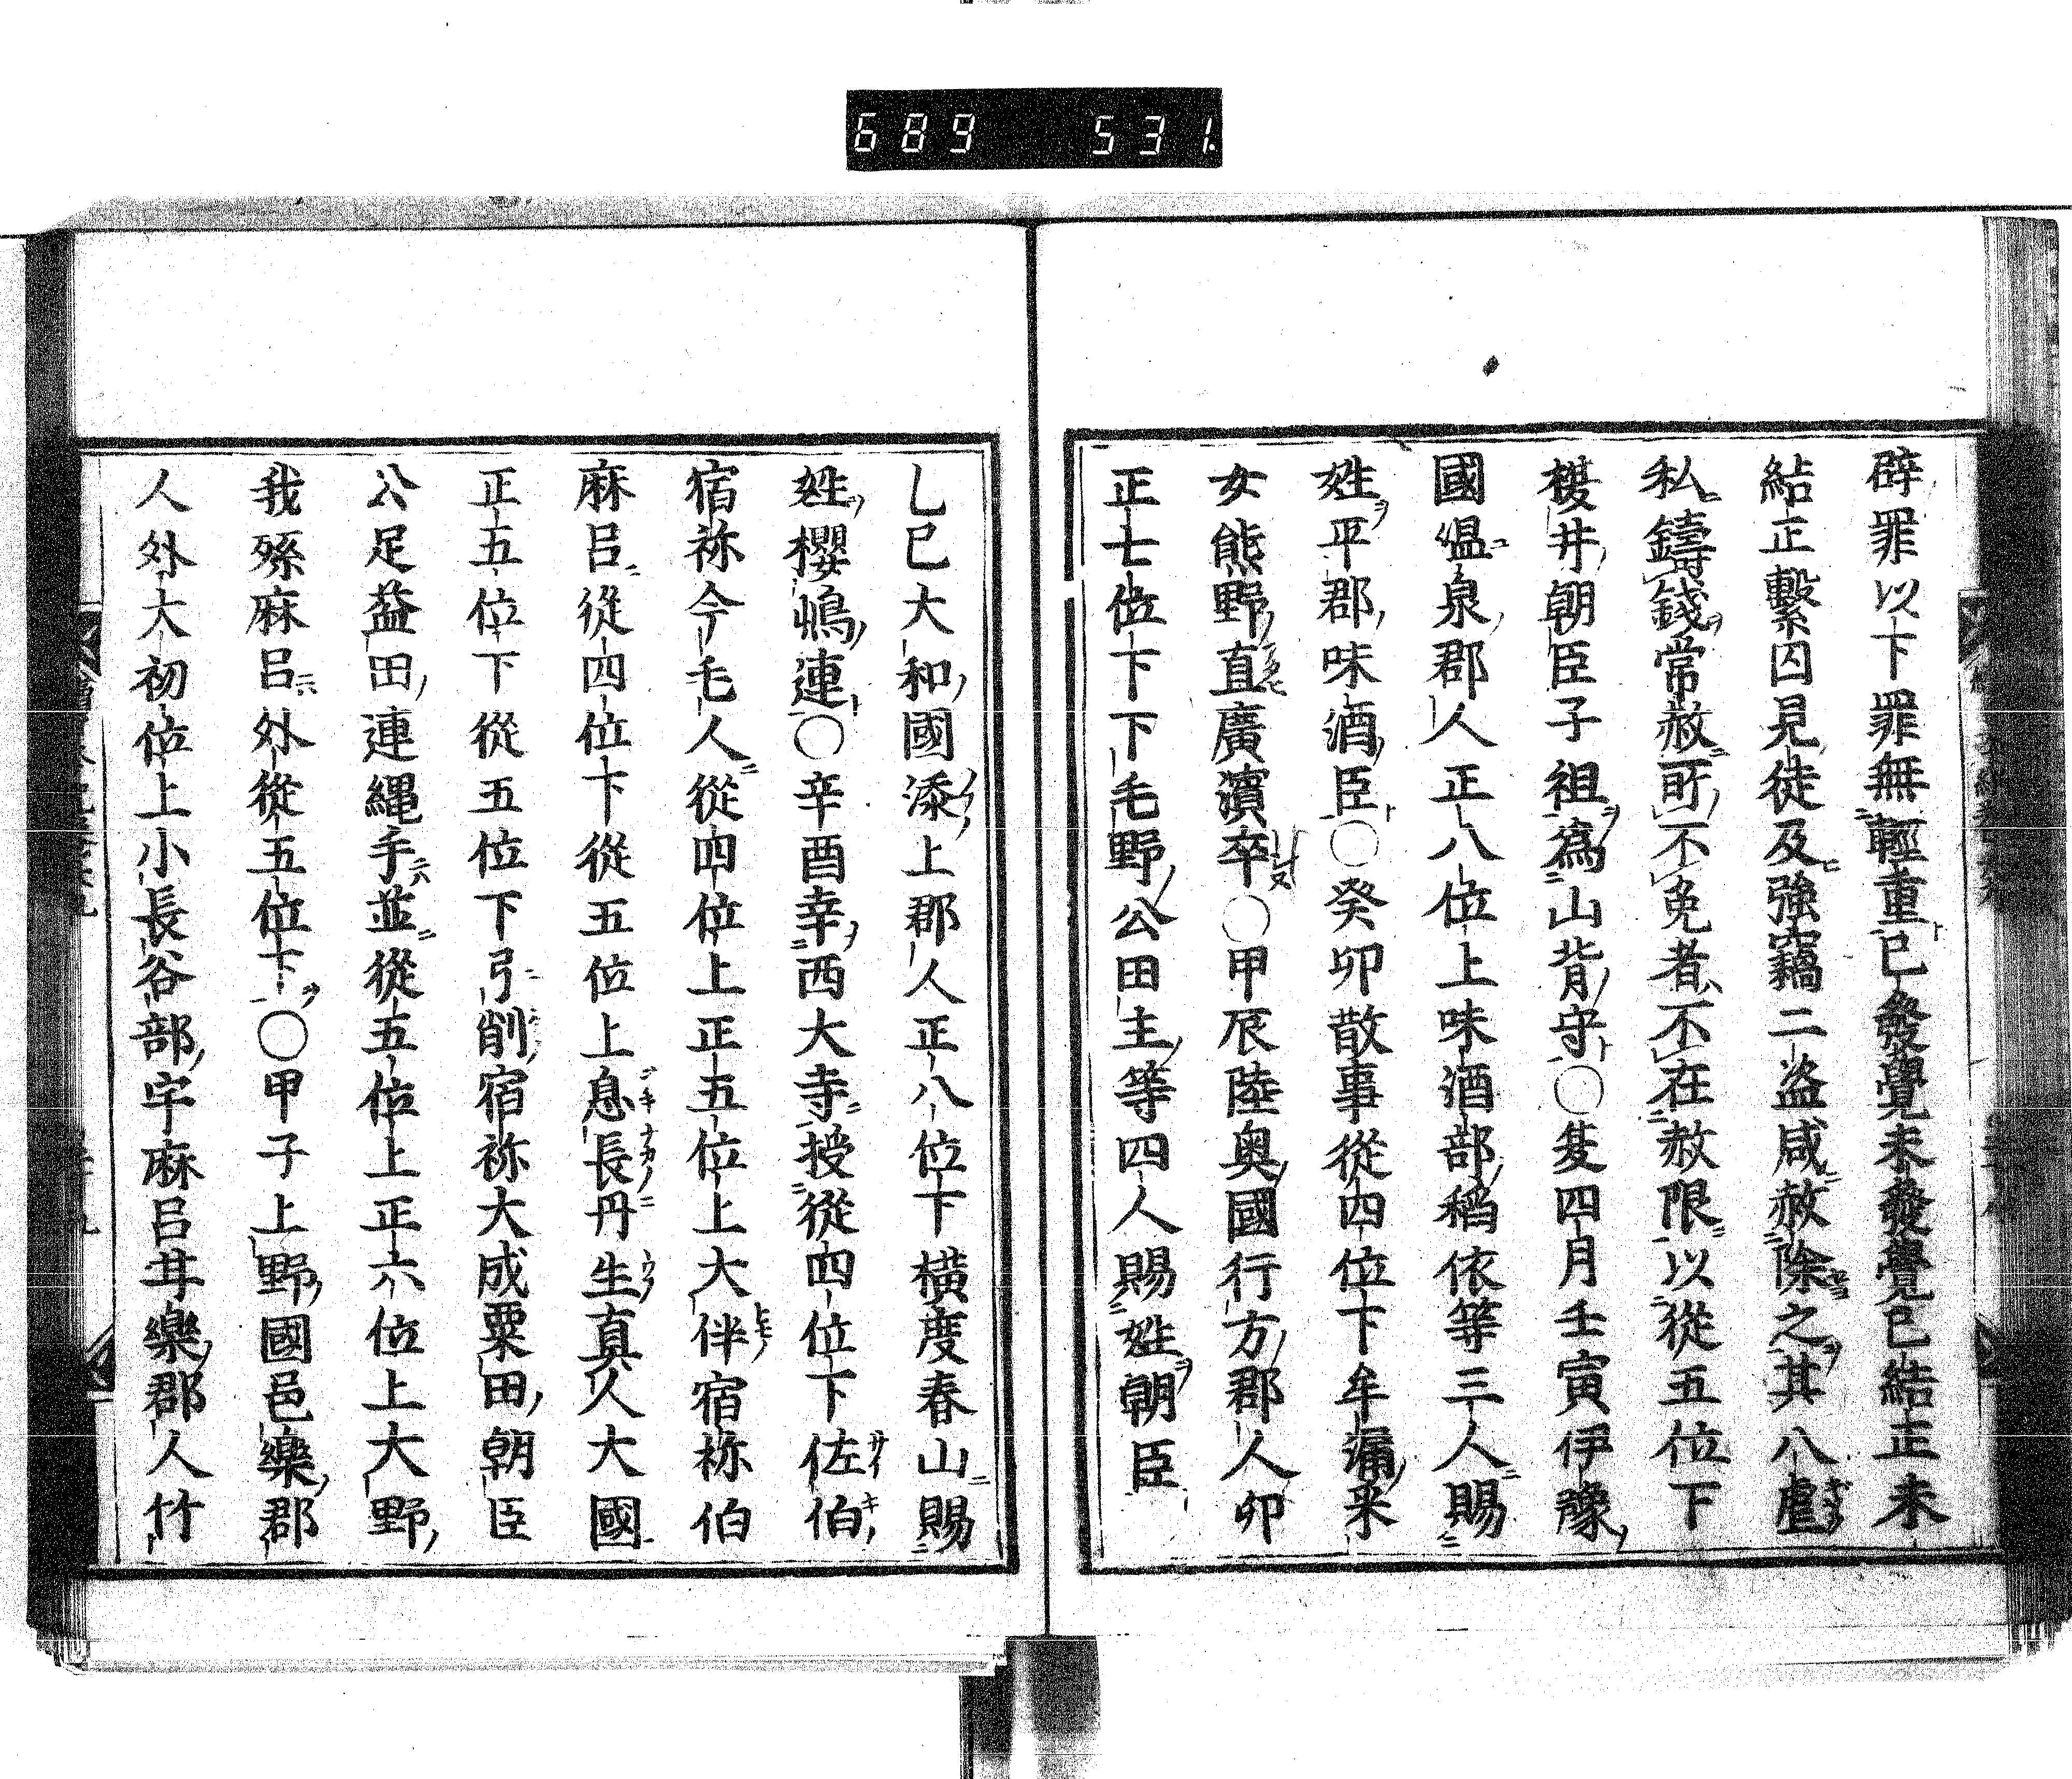 689 531.
辟罪以下罪無輕重已發覺未發覺已結正未
結正繫囚見徒及強竊二盜咸赦除之其八虐
私鑄錢常赦所不免者不在赦限以從五位下
櫻井朝臣子祖為山背守○夏四月壬寅伊豫
國温泉郡人正八位上味酒部稻依等三人賜
姓平郡味酒臣○癸卯散事從四位下牟漏采
女熊野直廣濱卒○甲辰陸奥國行方郡人卯
正七位下下毛野公田主等四人賜姓朝臣
乚巳大和國添上郡人正八位下橫度春山賜
姓櫻嶋連○辛酉幸西大寺授從四位下佐伯
宿祢今毛人從四位上正五位上大伴宿祢伯
麻呂從四位下從五位上息長丹生真人大國
正五位下從五位下弓削宿祢大成粟田朝臣
公足益田連繩手並從五位上正六位上大野
我孫麻呂外從五位下○甲子上野國邑樂郡
人外大初位上小長谷部宇麻呂甘樂郡人竹